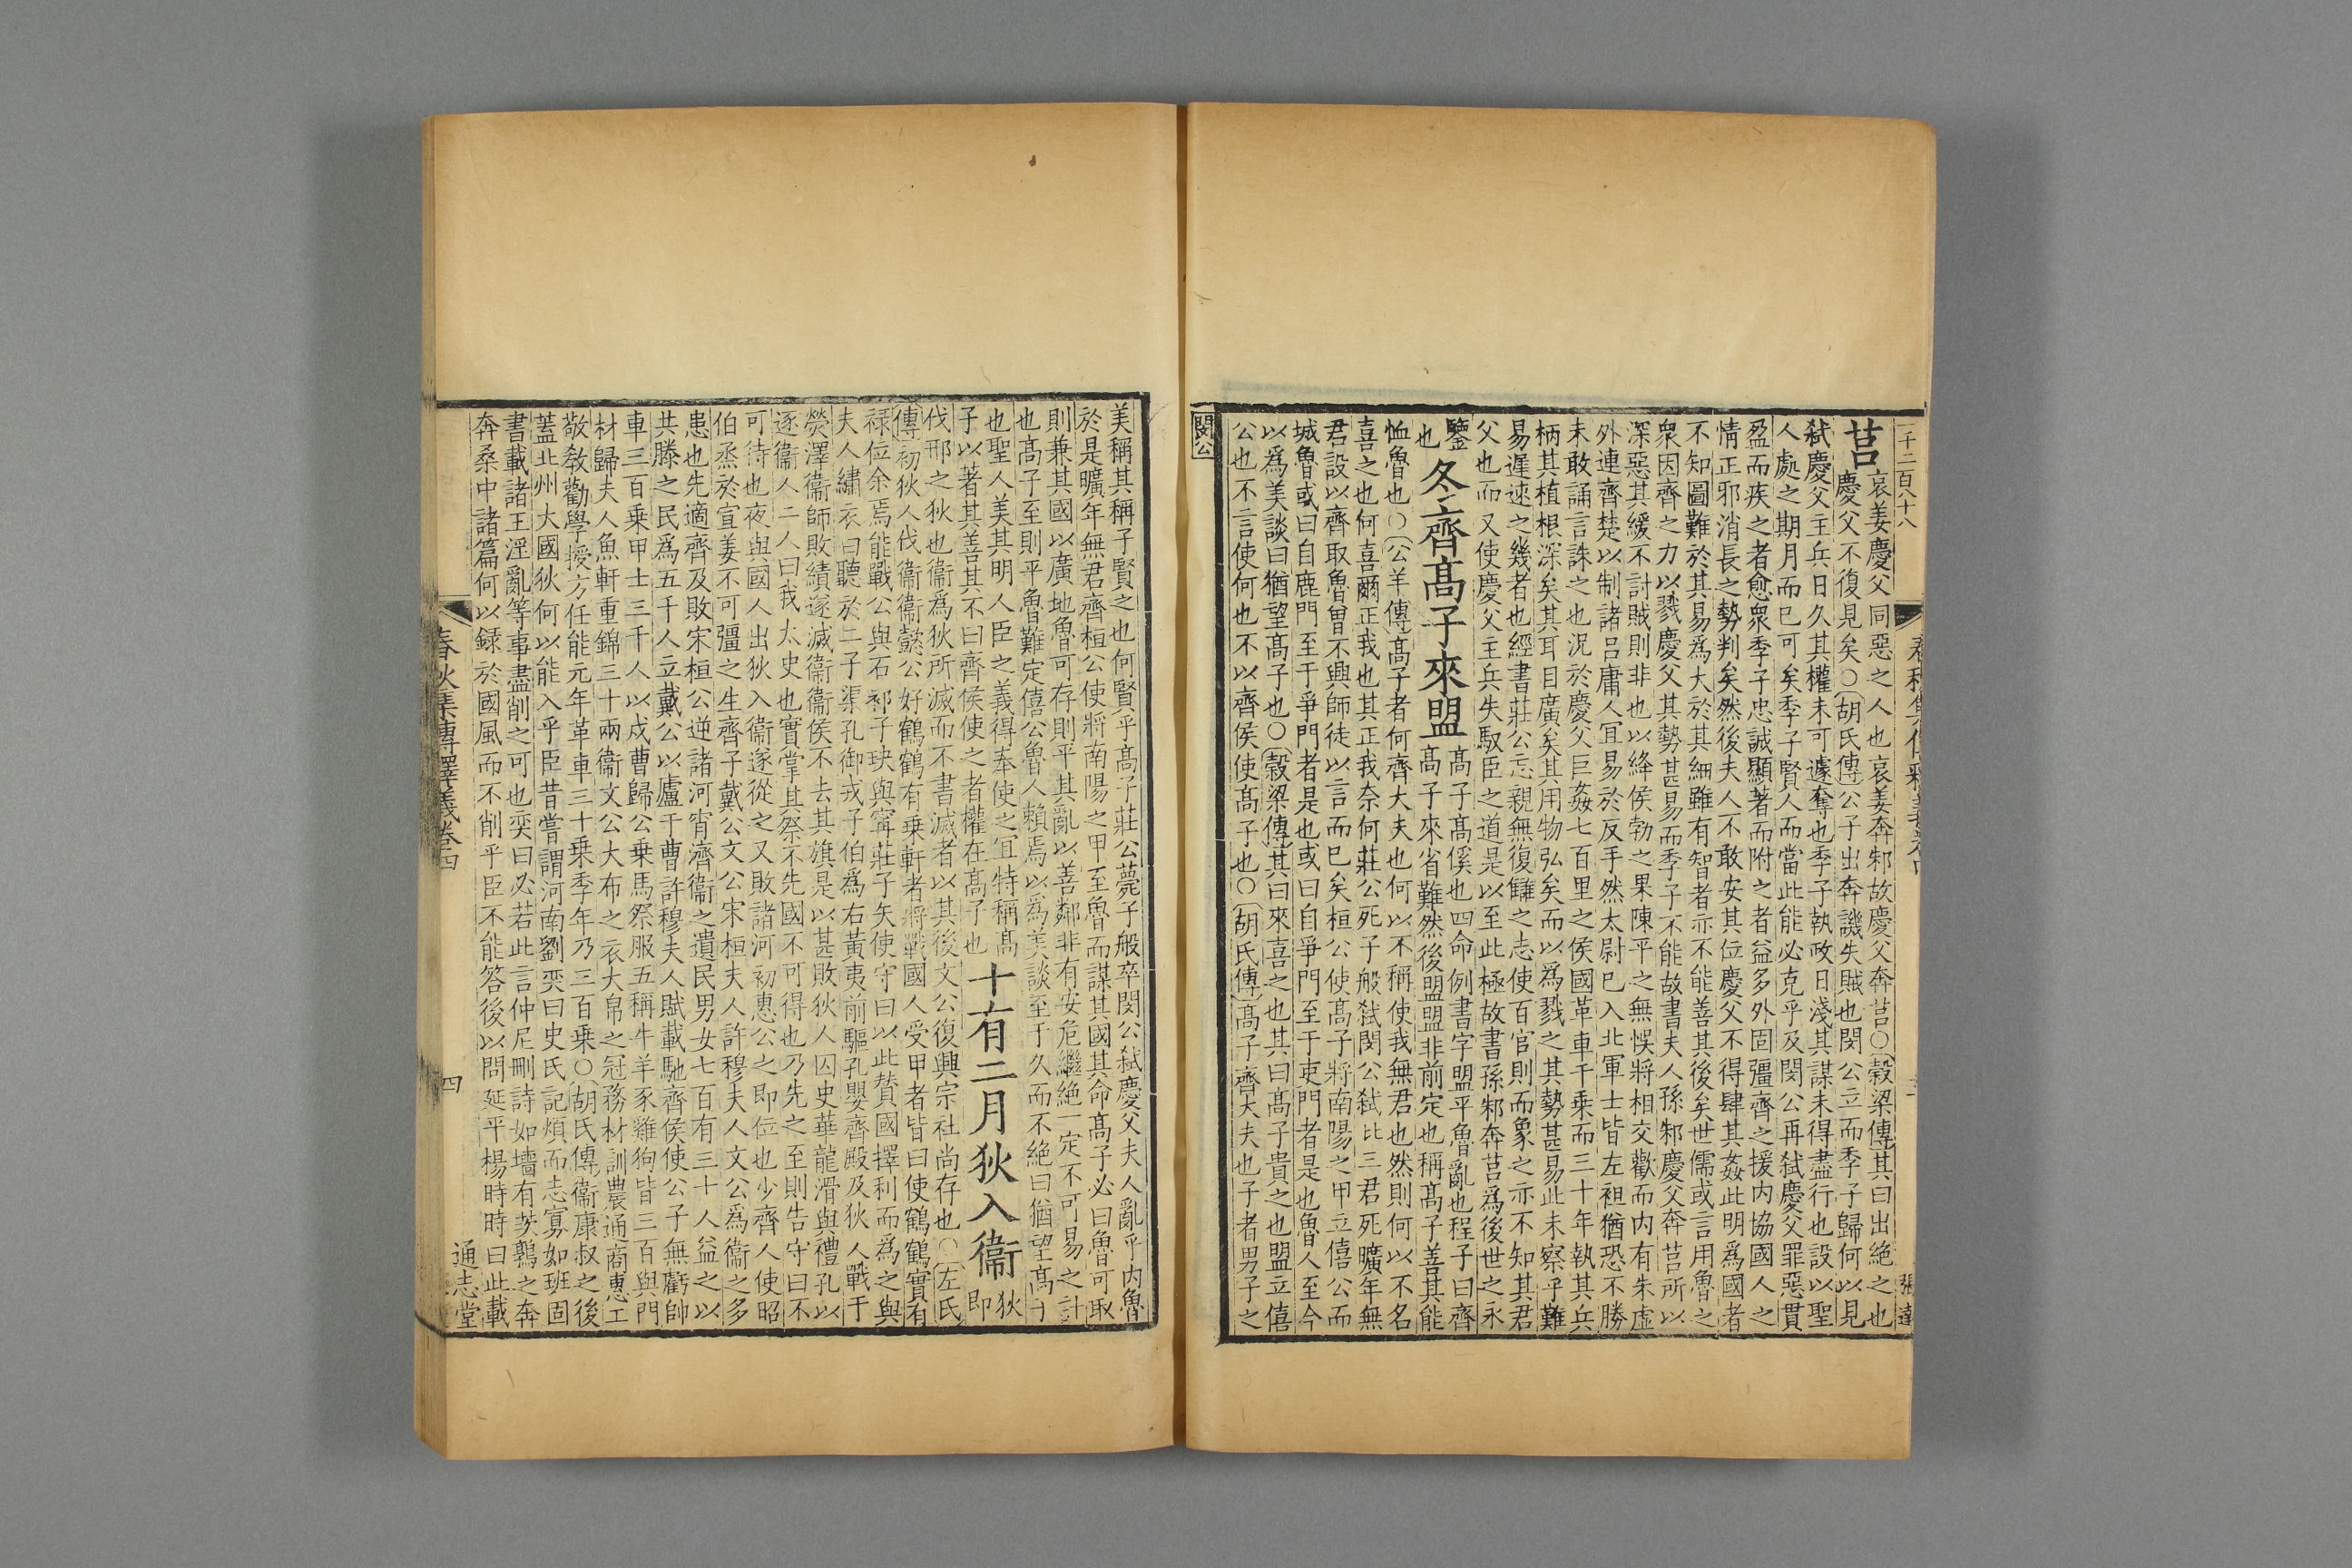 一千二百八十八
春秋集傳釋義卷四
張達
莒
哀姜慶父同惡之人也哀姜奔邾故慶父奔莒○穀梁傳其曰出絶之也
慶父不復見矣○胡氏傳公子出奔譏失賊也閔公立而季子歸何以見
弑慶父主兵日久其權未可遽奪也季子執政日淺其謀未得盡行也設以聖
人處之期月而已可矣季子賢人而當此能必克乎及閔公再弑慶父罪惡貫
盈而疾之者愈衆季子忠誠顯著而附之者益多外固彊齊之援内協國人之
情正邪消長之勢判矣然後夫人不敢安其位慶父不得肆其姦此明爲國者
不知圖難於其易爲大於其細雖有智者亦不能善其後矣世儒或言用魯之
衆因齊之力以戮慶父其勢甚易而季子不能故書夫人孫邾慶父奔莒所以
深惡其緩不討賊則非也以絳侯勃之果陳平之無悞將相交歡而内有朱虛
外連齊楚以制諸呂庸人宜易於反手然太尉已入北軍士皆左袒猶恐不勝
未敢誦言誅之也況於慶父巨姦七百里之侯國革車千乗而三十年執其兵
柄其植根深矣其耳目廣矣其用物弘矣而以爲戮之其勢甚易此未察乎難
易遲速之幾者也經書莊公忘親無復讎之志使百官則而象之亦不知其君
父也而又使慶父主兵失馭臣之道是以至此極故書孫邾奔莒爲後世之永
鑒
也
冬齊髙子來盟
髙子髙傒也四命例書字盟平魯亂也程子曰齊
髙子來省難然後盟盟非前定也稱髙子善其能
恤魯也○公羊傳髙子者何齊大夫也何以不稱使我無君也然則何以不名
喜之也何喜爾正我也其正我奈何莊公死子般弑閔公弑比三君死曠年無
君設以齊取魯曾不興師徒以言而已矣桓公使髙子將南陽之甲立僖公而
城魯或曰自鹿門至于爭門者是也或曰自爭門至于吏門者是也魯人至今
以爲美談曰猶望髙子也○穀梁傳其曰來喜之也其曰髙子貴之也盟立僖
公也不言使何也不以齊侯使髙子也○胡氏傳髙子齊大夫也子者男子之
閔公
美稱其稱子賢之也何賢乎髙子莊公薨子般卒閔公弑慶父夫人亂乎内魯
於是曠年無君齊桓公使將南陽之甲至魯而謀其國其命髙子必曰魯可取
則兼其國以廣地魯可存則平其亂以善鄰非有安危繼絶一定不可易之計
也髙子至則平魯難定僖公魯人賴焉以爲美談至于久而不絶曰猶望髙子
也聖人美其明人臣之義得奉使之宜特稱髙
子以著其善其不曰齊侯使之者權在髙子也
十有二月狄入衞
狄
即
伐邢之狄也衞爲狄所滅而不書滅者以其後文公復興宗社尚存也○左氏
傳初狄人伐衞衞懿公好鶴鶴有乗軒者將戰國人受甲者皆曰使鶴鶴實有
禄位余焉能戰公與石祁子玦與寗莊子矢使守曰以此賛國擇利而爲之與
夫人繡衣曰聽於二子渠孔御戎子伯爲右黃夷前驅孔嬰齊殿及狄人戰于
熒澤衞師敗績遂滅衞衞侯不去其旗是以甚敗狄人囚史華龍滑與禮孔以
逐衞人二人曰我太史也實掌其祭不先國不可得也乃先之至則告守曰不
可待也夜與國人出狄入衞遂從之又敗諸河初惠公之即位也少齊人使昭
伯烝於宣姜不可彊之生齊子戴公文公宋桓夫人許穆夫人文公爲衞之多
患也先適齊及敗宋桓公逆諸河宵濟衞之遺民男女七百有三十人益之以
共滕之民爲五千人立戴公以廬于曹許穆夫人賦載馳齊侯使公子無虧帥
車三百乗甲士三千人以戍曹歸公乗馬祭服五稱牛羊豕雞狗皆三百與門
材歸夫人魚軒重錦三十兩衞文公大布之衣大帛之冠務材訓農通商惠工
敬敎勸學授方任能元年革車三十乗季年乃三百乗○胡氏傳衞康叔之後
蓋北州大國狄何以能入乎臣昔嘗謂河南劉奕曰史氏記煩而志寡如班固
書載諸王淫亂等事盡削之可也奕曰必若此言仲尼刪詩如墻有茨鶉之奔
奔桑中諸篇何以録於國風而不削乎臣不能答後以問延平楊時時曰此載
春秋集傳釋義卷四
四
通志堂